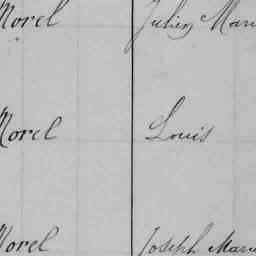 Morel Julien Marie
Morel Louis
Morel Joseph Marie